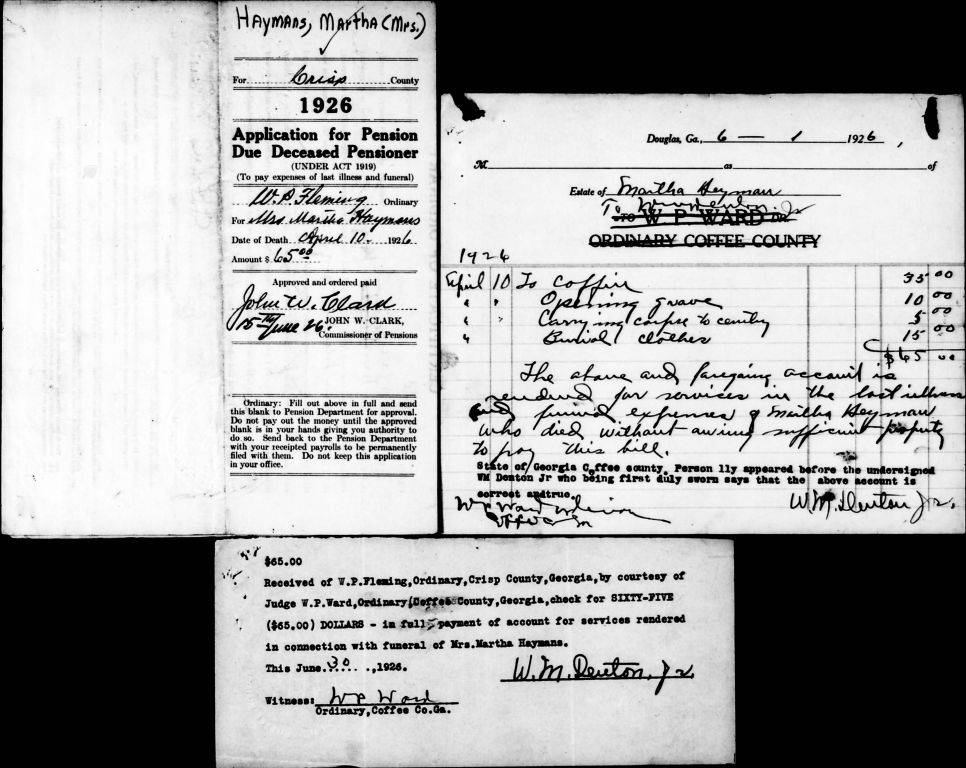 Haymans, Martha (Mrs.)
For Crisp County
1926
Application for Pension
Due Deceased Pensioner
(UNDER ACT 1919)
(To pay expenses of last illness and funeral)
W.P. Fleming Ordinary
For Mrs Martha Haymans
Date of Death April 10. 1926
Amount $ 65.00
Approved and ordered paid
John W. Clark
15th June 26.
JOHN W. CLARK,
Commissioner of Pensions
Ordinary: Fill out above in full and send
this blank to Pension Department for approval.
Do not pay out the money until the approved
blank is in your hands giving you authority to
do so. Send back to the Pension Department
with your receipted payrolls to be permanently
filed with them. Do not keep this application
in your office.
Douglas, Ga., 6 — 1 1926,
M as of
Estate of Martha Heyman
To Wm Denton Jr
TO W. P. WARD DR.
ORDINARY COFFEE COUNTY
1926
April 10 To coffin 35 00
" " Opening grave 10 00
" " Carrying corpse to cemtry 5 00
" Burial clothes 15 00
$65 00
The above and foregoing account is
rendered for services in the last illness
and funeral expenses of Martha Heyman
who died without owning sufficient property
to pay this bill.
State of Georgia C ffee county. Person lly appeared before the undersigned
WM Denton Jr who being first duly sworn says that the above account is
correct andtrue.
W P Ward W.M. Denton Jr.
$65.00
Received of W.P.Fleming,Ordinary,Crisp County,Georgia,by courtesy of
Judge W.P.Ward,Ordinary,Coffee County,Georgia,check for SIXTY-FIVE
($65.00) DOLLARS - in full payment of account for services rendered
in connection with funeral of Mrs.Martha Haymans.
This June. 30 .,1926.
W.M. Denton, Jr.
Witness: W P Ward
Ordinary,Coffee Co.Ga.